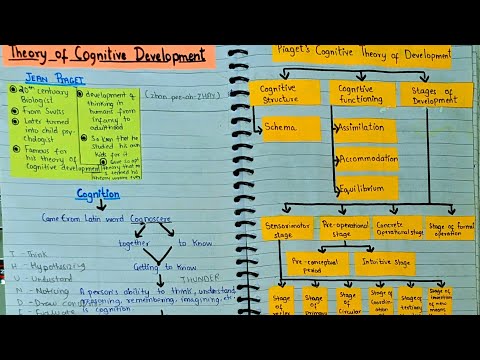 Theory of Cognitive Development
JEAN PIAGET
20th centuary
Biologist
From Swiss
Later turned
into child psy-
chologist
Famous for
his theory of
Cognitive development
development of
thinking in
humans from
infancy to
adulthood
So keen that he
studied his own
kids for it
(zhan pee-ah-ZHAY)
Cognition
Came from Latin word Cognoscere
together
to know
Getting to know
T - Think
H - Hypothesizing
U - Understand
M - Noticing
THUNDER
A person's ability to think, understand,
reasoning, remembering, imagining, etc.
is cognition
Piaget's Cognitive Theory of Development
Cognitive
Structure
Cognitive
functioning
Stages of
Development
Schema
Assimilation
Accommodation
Equilibrium
Sensorimotor
stage
Pre-operational
stage
Concrete
Operational stage
Stage of formal
operation
Pre-conceptual
period
Intuitive stage
Stage
of reflex
Stage
of primary
Stage of
Circular
Stage of
Coordin-
ation
Stage
of tertiary
Stage of invention
of new means